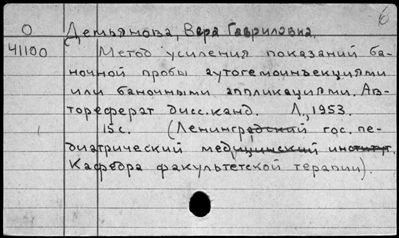 6
О Демьянова, Вера Гавриловна.
41100 Метод усиления показаний ба-
ночной пробы аутогемоинъекциями
или баночными аппликациями. Ав-
тореферат дисс. канд. Л., 1953.
15 с. (Ленинградский гос. пе-
диатрический медицинский институт.
Кафедра факультетской терапии).